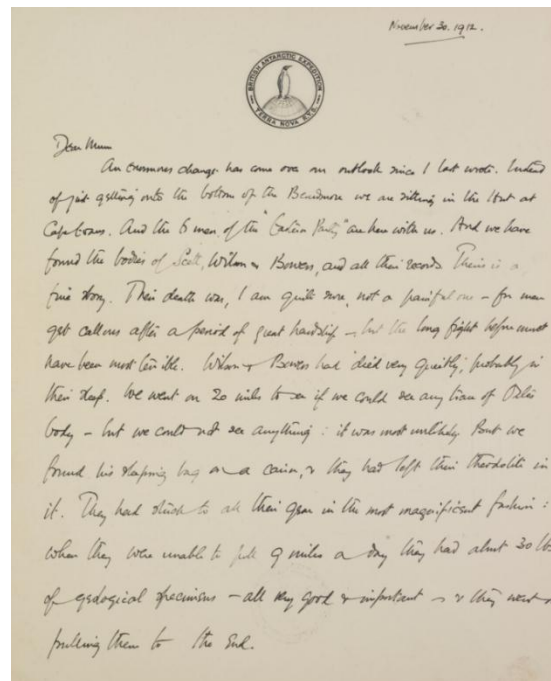 November 30. 1912.
BRITISH ANTARCTIC EXPEDITION
TERRA NOVA R.Y.S.
Dear Mum
An enormous change has come over our outlook since I last wrote. Instead
of just getting onto the bottom of the Beardmore we are sitting in the Hut at
Cape Evans. And the 6 men of the "Eastern Party" are here with us. And we have
found the bodies of Scott, Wilson & Bowers, and all their records. Theirs is a
fine story. Their death was, I am quite sure, not a painful one – for men
get callous after a period of great hardship – but the long fight before must
have been most terrible. Wilson & Bowers had died very quietly, probably in
their sleep. We went on 20 miles to see if we could see any trace of Oates
body – but we could not see anything: it was most unlikely. But we
found his sleeping bag on a cairn, & they had left their theodolite in
it. They had stuck to all their gear in the most magnificent fashion:
when they were unable to pull 9 miles a day they had almost 30 lbs
of geological specimens – all very good & important – & they went
pulling them to the End.